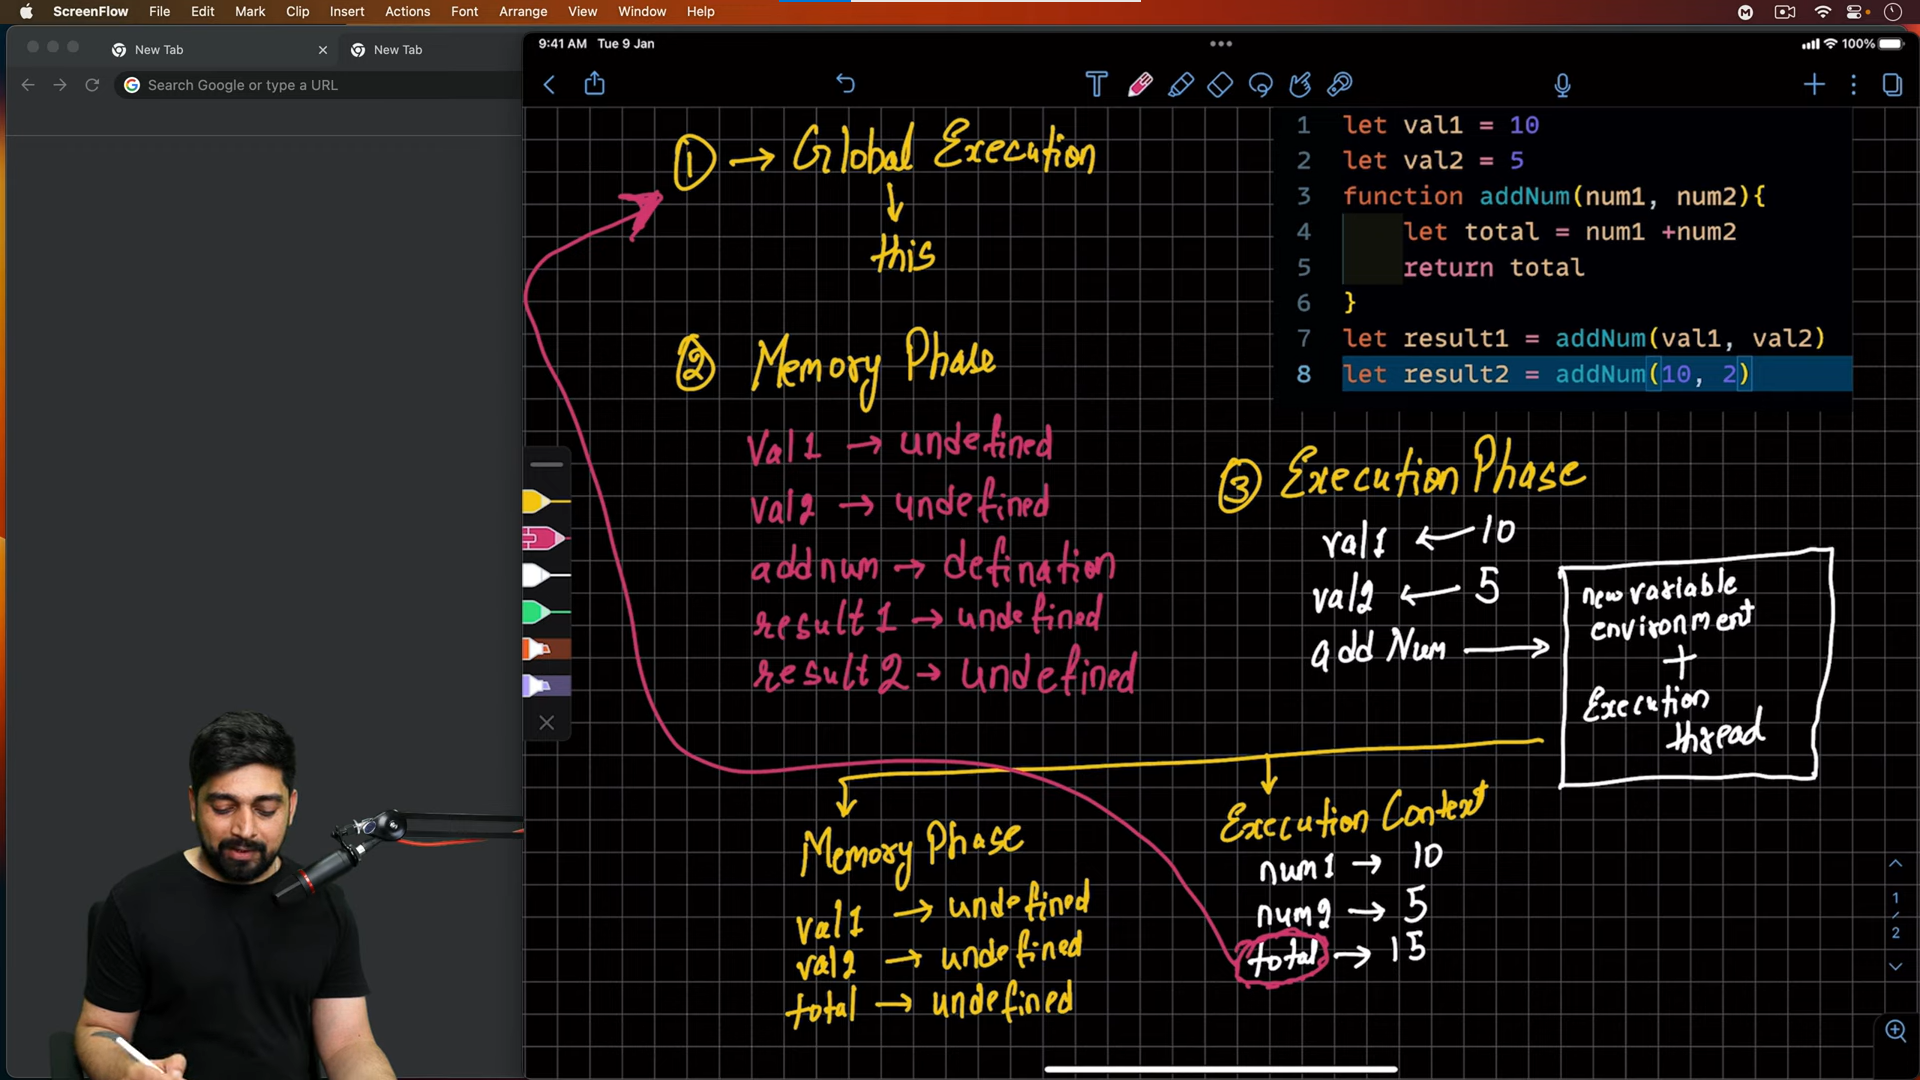 ScreenFlow File Edit Mark Clip Insert Actions Font Arrange View Window Help
New Tab
New Tab
Search Google or type a URL
9:41 AM Tue 9 Jan
100%
1 → Global Execution
this
2 Memory Phase
Val1 → undefined
val2 → undefined
addnum → defination
result1 → undefined
result2 → undefined
1 let val1 = 10
2 let val2 = 5
3 function addNum(num1, num2){
4 let total = num1 +num2
5 return total
6 }
7 let result1 = addNum(val1, val2)
8 let result2 = addNum(10, 2)
3 Execution Phase
val1 ← 10
val2 ← 5
add Num →
new variable
environment
+
Execution
thread
Memory Phase
val1 → undefined
val2 → undefined
total → undefined
Execution Context
num1 → 10
num2 → 5
total → 15
1
/
2